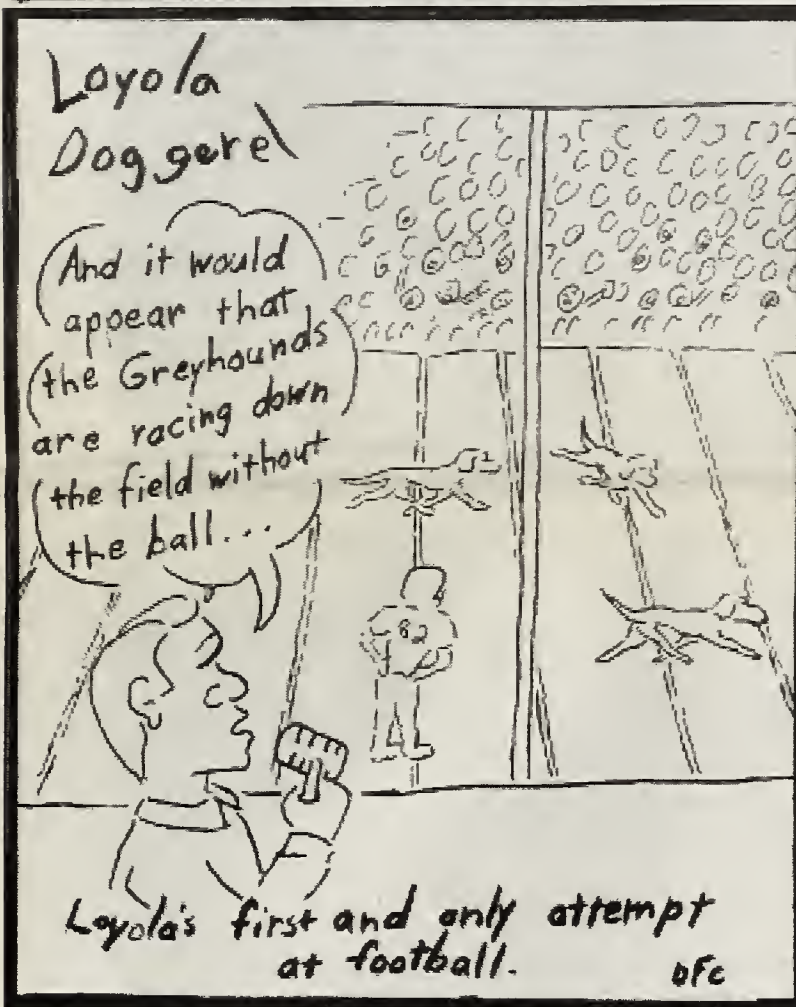 Loyola
Doggerel
And it would
appear that
the Greyhounds
are racing down
the field without
the ball...
Loyola's first and only attempt
at football.
DFC